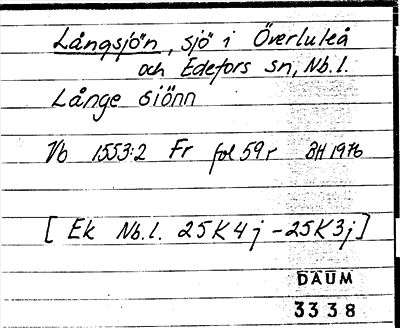 Långsjön, sjö i Överluleå
och Edefors sn, Nb.l.
Långe siönn
Vb 1553:2 Fr fol 59 r BH 1976
[ Ek Nb.l. 25K4j - 25K3j ]
DAUM
3338